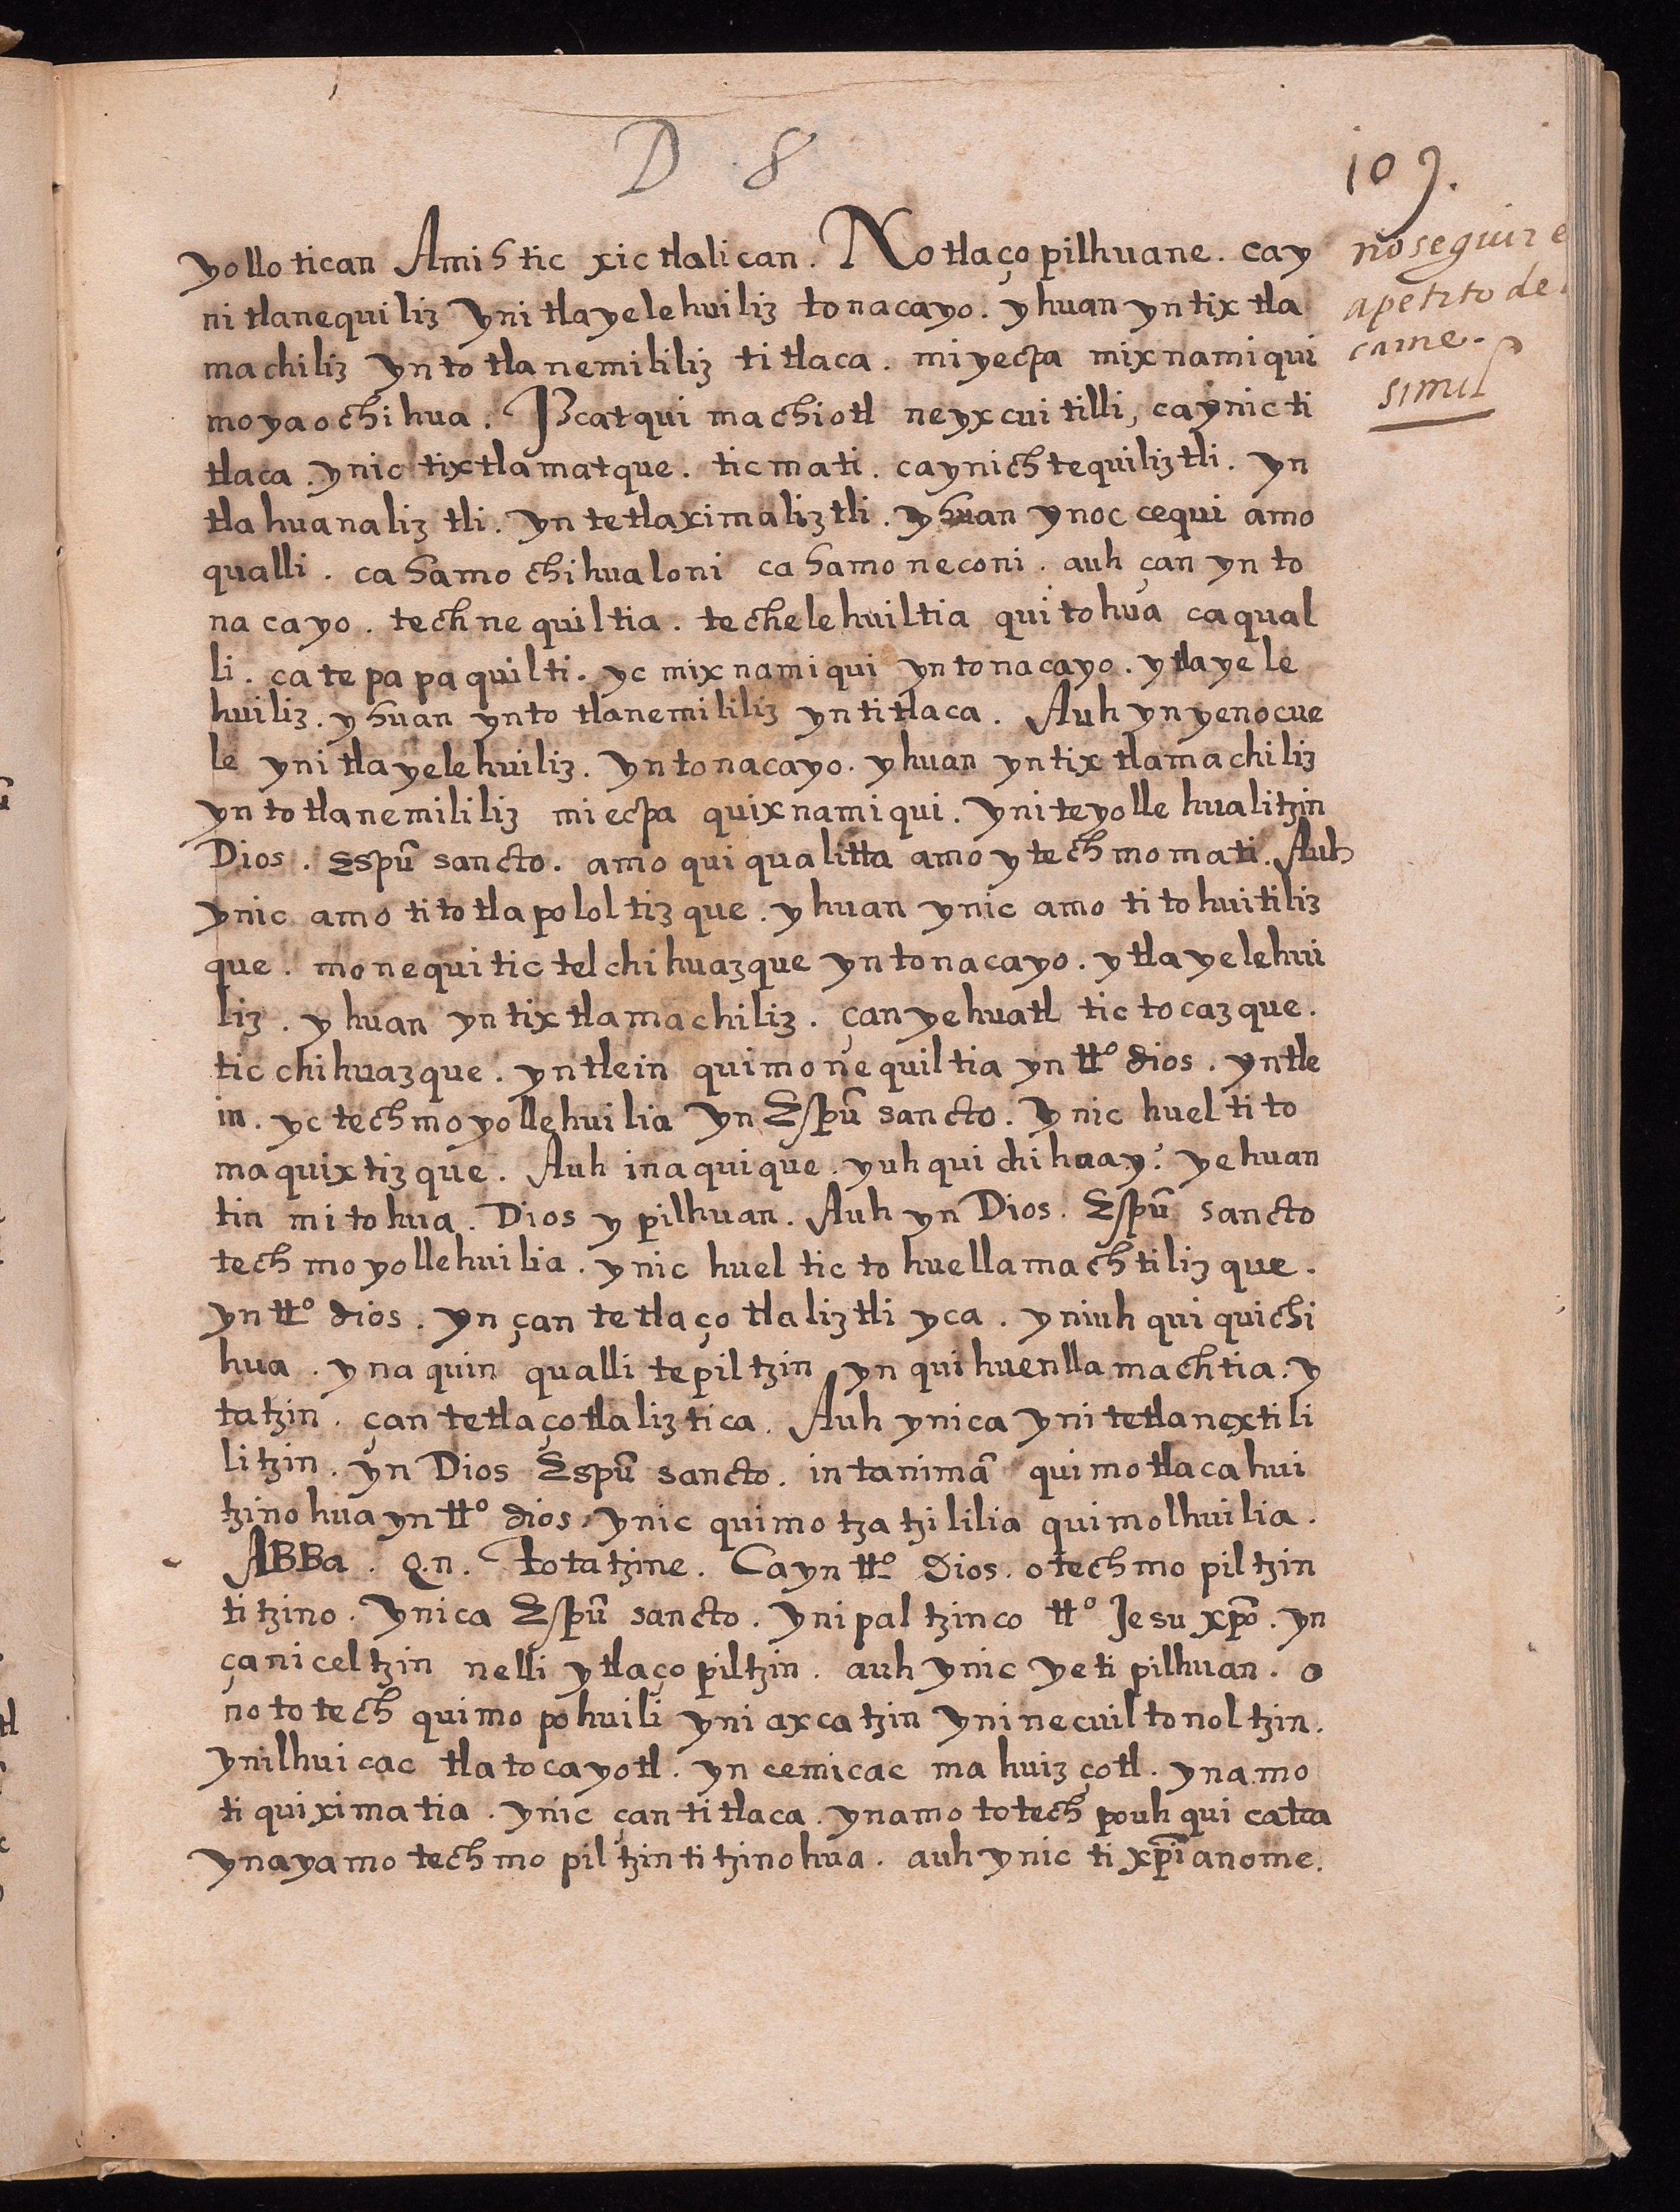 D 8
109.
yollotican Amihtic xictlalican. Notlaçopilhuane. cay
nitlanequiliz ynitlayelehuiliz tonacayo. yhuan yntixtla
machiliz yntotlanemililiz titlaca. miyecpa mixnamiqui
moyaochihua. Izcatqui machiotl neyxcuitilli, caynicti
tlaca. ynic tixtlamatque. ticmati. caynichtequiliztli. yn
tlahuanaliztli. yn tetlaximaliztli. yhuan ynoc cequi amo
qualli. cahamo chihualoni cahamo neconi. auh çan ynto
nacayo. technequiltia. techelehuiltia quitohua caqual
li. catepapaquilti. yc mixnamiqui yntonacayo. ytlayele
huiliz. yhuan ynto tlanemililiz yntitlaca. Auh ynyenocue
le ynitlayelehuiliz. yntonacayo. yhuan yntixtlamachiliz
yntotlanemililiz miecpa quixnamiqui. yniteyollehualitzin
Dios. Espũ sancto. amo quiqualitta amo ytechmomati. Auh
ynic amo titotlapololtizque. yhuan ynic amo titohuitiliz
que. monequi tictelchihuazque yntonacayo. ytlayelehui
liz. yhuan yntixtlamachiliz. çanyehuatl tictocazque.
ticchihuazque. yntlein quimonequiltia yn tt.º dios. yntle
in. yc techmoyollehuilia yn Espũ sancto. ynic huel tito
maquixtizque. Auh inaquique. yuhquichihuay: yehuan
tin mitohua. Dios ypilhuan. Auh yn Dios. Espũ sancto
techmoyollehuilia. ynic huel tictohuellamachtilizque.
yn tt.º dios. yn çan tetlaçotlaliztli yca. yniuhqui quichi
hua. ynaquin qualli tepiltzin yn quihuenllamachtia. y
tatzin. çan tetlaçotlaliztica. Auh ynica ynitetlanextili
litzin. yn Dios Espũ sancto. intanimã quimotlacahui
tzinohua yn tt.º dios, ynic quimotzatzililia quimolhuilia.
ABBa. Q.n. totatzine. Cayn tt.º Dios. otechmopiltzin
titzino. ynica Espũ sancto. ynipaltzinco tt.º Jesu xpõ. yn
çaniceltzin nelli ytlaçopiltzin. auh ynic yetipilhuan. o
nototech quimopohuili yniaxcatzin yninecuiltonoltzin.
ynilhuicac tlatocayotl. yn cemicac mahuizçotl. ynamo
tiquiximatia. ynic çantitlaca. ynamo totech pouhqui catca
ynayamo techmopiltzintitzinohua. auh ynic tixpĩanome.
no seguir e
apetito de
carne.
simil